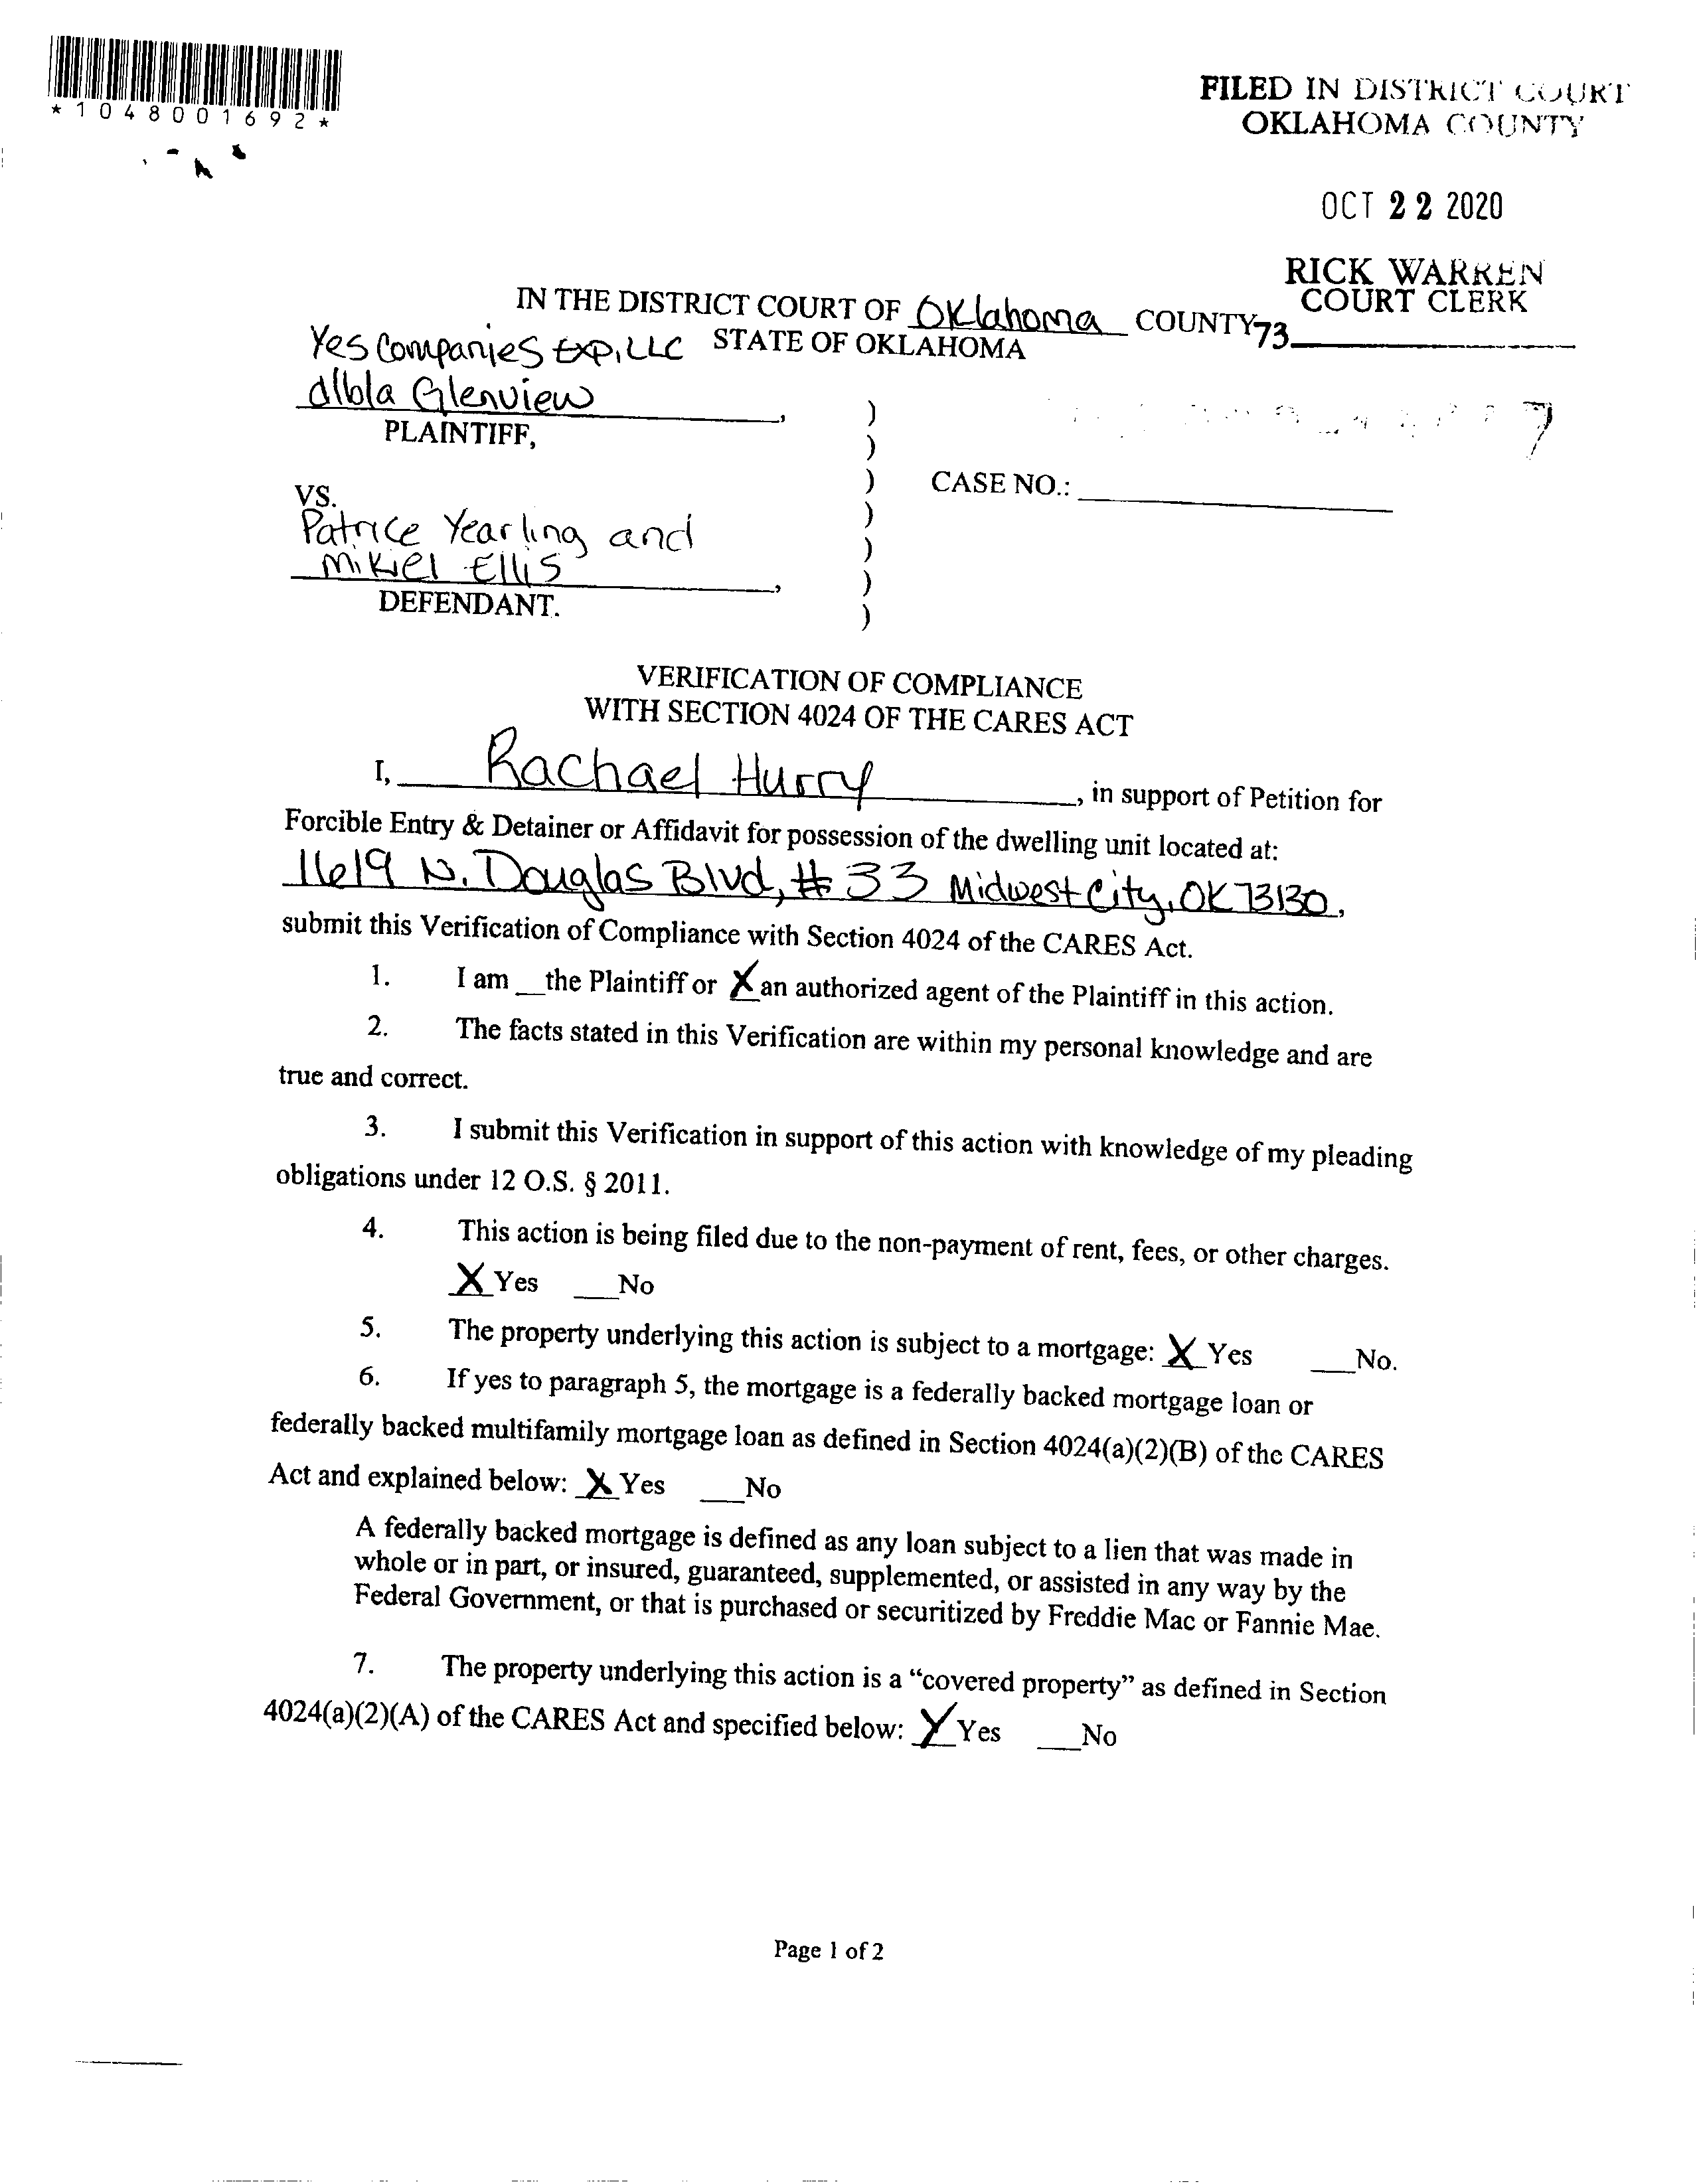 *1048001692*
FILED IN DISTRICT COURT
OKLAHOMA COUNTY
OCT 22 2020
RICK WARREN
COURT CLERK
73
IN THE DISTRICT COURT OF Oklahoma COUNTY
STATE OF OKLAHOMA
Yes Companies EXP, LLC
d/b/a Glenview
PLAINTIFF,
VS.
CASE NO.:
Patrice Yearling and
Mikiel Ellis
DEFENDANT.
VERIFICATION OF COMPLIANCE
WITH SECTION 4024 OF THE CARES ACT
I, Rachael Hurry, in support of Petition for
Forcible Entry & Detainer or Affidavit for possession of the dwelling unit located at:
1619 N. Douglas Blvd, # 33 Midwest City, OK 73130,
submit this Verification of Compliance with Section 4024 of the CARES Act.
1. I am __the Plaintiff or X an authorized agent of the Plaintiff in this action.
2. The facts stated in this Verification are within my personal knowledge and are
true and correct.
3. I submit this Verification in support of this action with knowledge of my pleading
obligations under 12 O.S. § 2011.
4. This action is being filed due to the non-payment of rent, fees, or other charges.
X Yes ___No
5. The property underlying this action is subject to a mortgage: X Yes ___No.
6. If yes to paragraph 5, the mortgage is a federally backed mortgage loan or
federally backed multifamily mortgage loan as defined in Section 4024(a)(2)(B) of the CARES
Act and explained below: X Yes ___No
A federally backed mortgage is defined as any loan subject to a lien that was made in
whole or in part, or insured, guaranteed, supplemented, or assisted in any way by the
Federal Government, or that is purchased or securitized by Freddie Mac or Fannie Mae.
7. The property underlying this action is a “covered property” as defined in Section
4024(a)(2)(A) of the CARES Act and specified below: X Yes ___No
Page 1 of 2